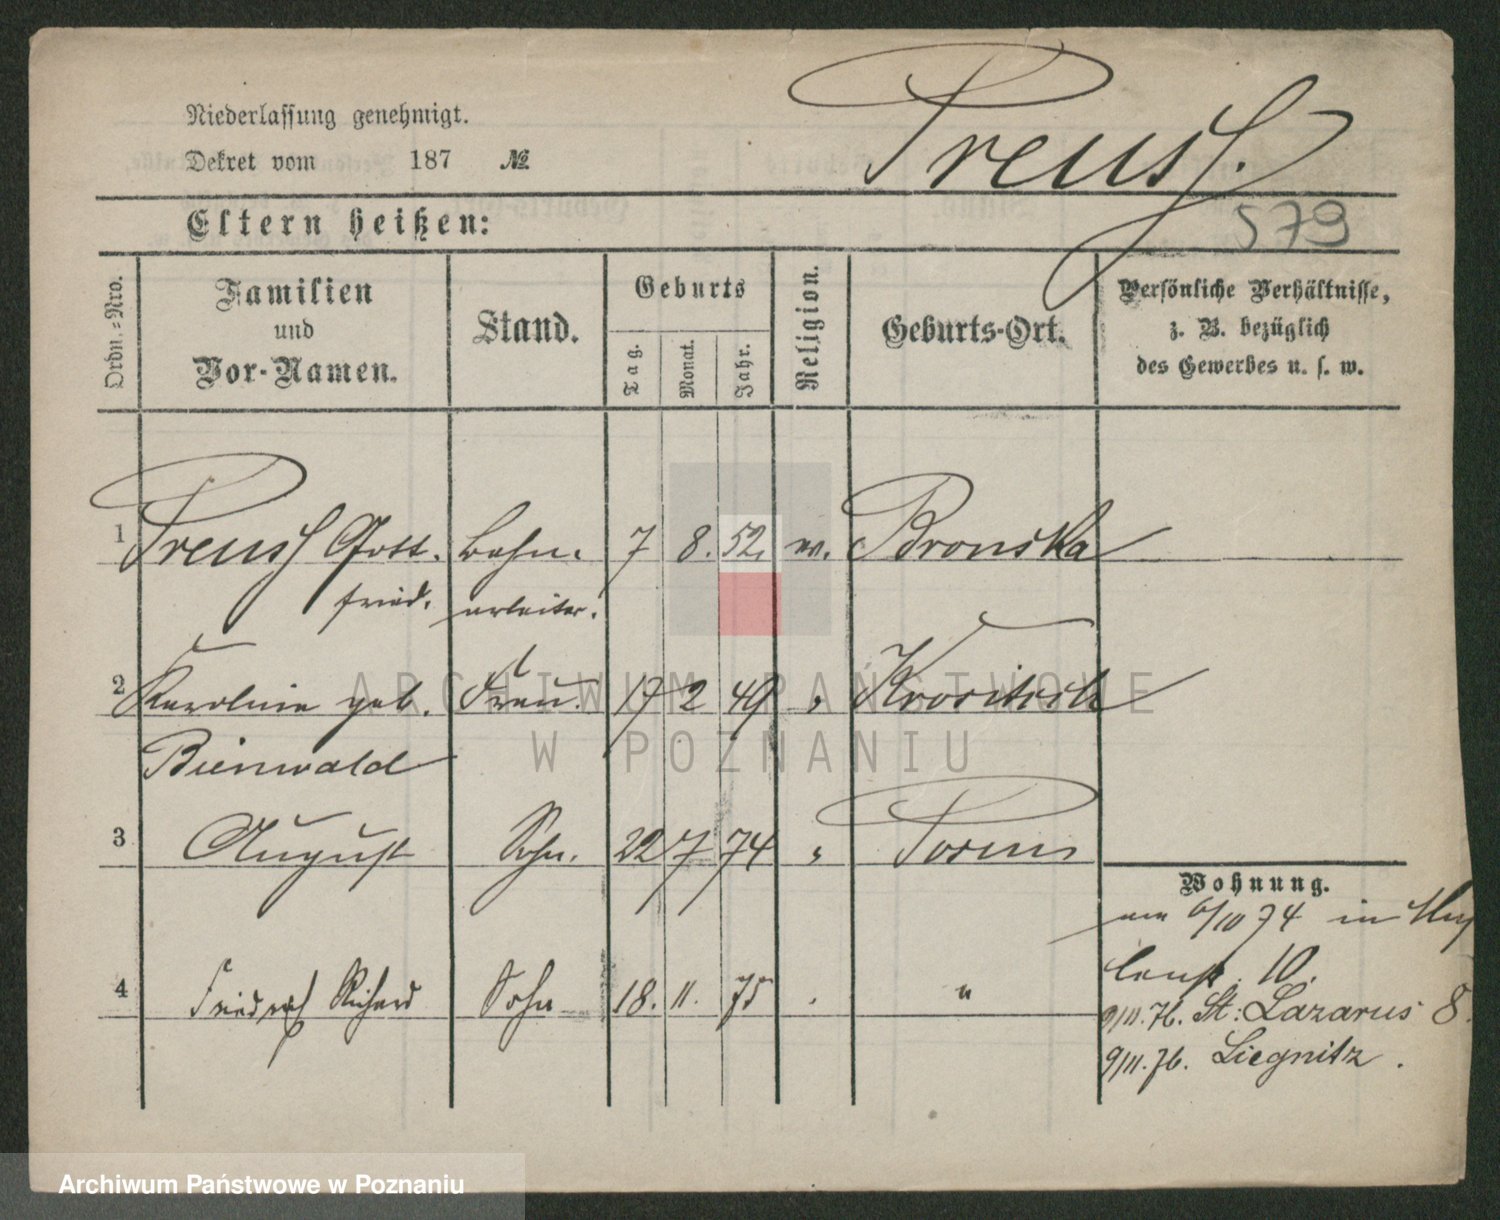 Preuß.
Niederlassung genehmigt.
Dekret vom 187 №
579
Eltern heißen:
Ordn.-Nro.
Familien
und
Vor-Namen.
Stand.
Geburts
Tag.
Monat.
Jahr.
Religion.
Geburts-Ort.
Persönliche Verhältnisse,
z. B. bezüglich
des Gewerbes u. s. w.
1 Preuß Gott- Bahn- 7 8. 52. ev. Bronska
fried. arbeiter.
2 Karoline geb. Frau. 17 2 49 " Krositsch
Bienwald
3 August Sohn. 22 7 74 " Posen
4 Friedrich Richard Sohn 18. 11. 75 "
Wohnung.
am 6/10 74 in
10.
9/11. 76. St. Lazarus 8.
9/11. 76. Liegnitz.
ARCHIWUM PAŃSTWOWE
W POZNANIU
Archiwum Państwowe w Poznaniu